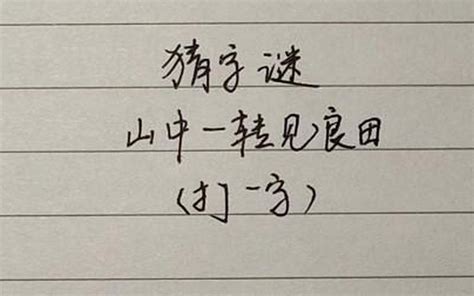 猜字谜
山中一转见良田
（打一字）